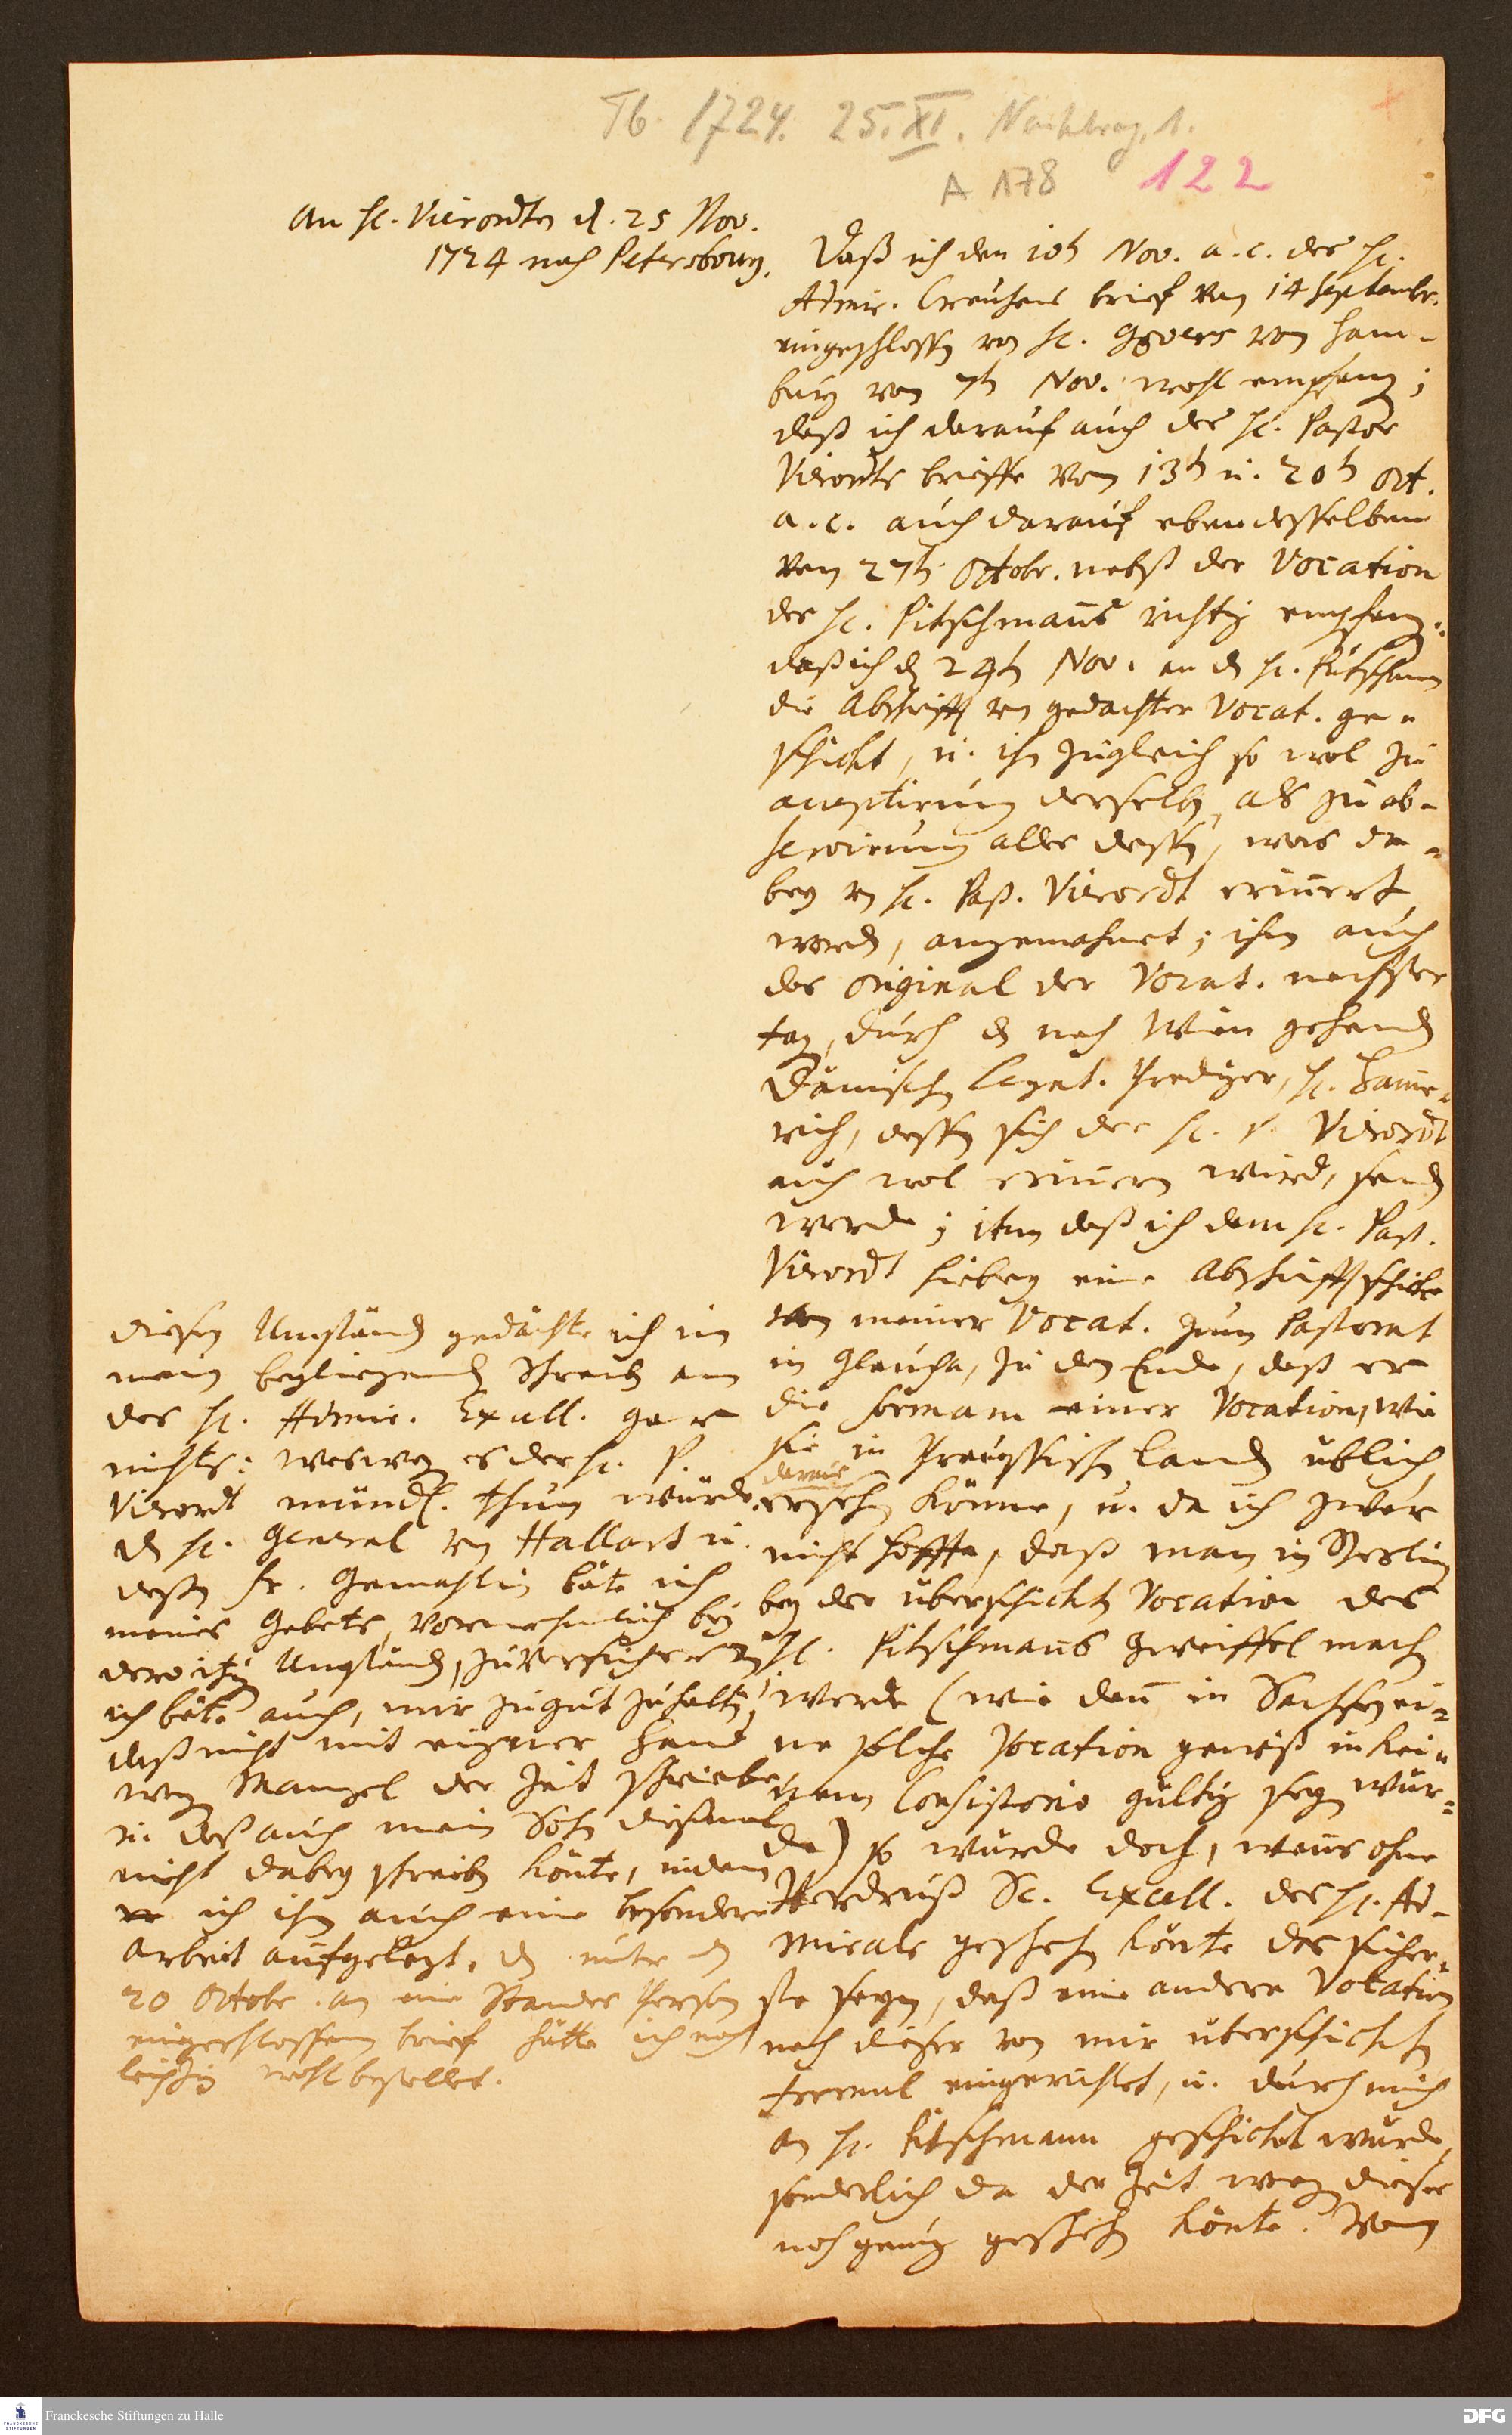 Tb. 1724. 25. XI. Nachtrag. 1.
A 178 122
An H. Vierordten d. 25 Nov.
1724 nach Petersbourg.
Daß ich den 10t Nov. a. c. des H.
Admir. Creuhens brief vom 14 Septembr.
eingeschlossen von H. von Ham-
burg vom 7t Nov. wohl empfang;
daß ich darauf auch des H. Pastor
Vierordts brieffe vom 13t u. 20t Oct.
a. c. auch darauf ebendesselben
vom 27t Octobr. nebst der Vocation
des H. Pitschmanns richtig empfang.
daß ich d 24t Nov. an d H. Pitschman
die Abschrifft von gedachter Vocat. ge-
schickt, u. ihn zugleich so wol zu
acceptirung derselben, als zu ob-
servirung alles dessen, was da-
bey von H. Past. Vierordt erinnert
worden, angemahnet; ihm auch
das Original der Vocat. nechster
tage, durch d nach Wien gehenden
Dänischen Legat. Prediger, H. Hame-
rich, dessen sich der H. P. Vierordt
auch wol erinnern wird, senden
werde; item daß ich dem H. Past.
Vierordt hiebey eine Abschrifft schicke
von meiner Vocat. zum Pastorat
in Glaucha, zu dem Ende, daß er
die formam einer Vocation, wie
sie in Preussischen Landen üblich,
daraus
ersehen könne, u. da ich zwar
nicht hoffte, daß man in Berlin
bey der überschickten Vocation des
H. Pitschmanns Zweiffel machen
werde (wie dann in Sachsen ei-
ne solche Vocation gewiß in kei-
nem Consistorio gültig seyn wür-
de) so würde doch, wenns ohne
Verdruß Sr. Excell. des H. Ad-
mirals geschehen könte das sicher-
ste seyn, daß eine andere Vocation
nach dieser von mir überschickten
formul eingerichtet, u. durch mich
an H. Pitschmann geschicket würde,
sonderlich da der Zeit wegen dieses
noch genug geschehen könte. Von
diesen Umständen gedächte ich in
mein beyliegenden Schreiben an
des H. Admir. Excell. gar
nichts: weswegen es der H. P.
Vierordt mündl. thun würde.
d H. General von Hallart u.
dessen Fr. Gemahlin bäte ich
meines Gebets, vornehmlich bey
dero itzigen Umständen, zu versichern
ich bäte auch, mir zu gut zu halten,
daß nicht mit eigner Hand
wegen Mangel der Zeit schriebe,
u. daß auch mein Sohn diesmal
nicht dabey schreiben könte, indem
ich ihm auch eine besondere
Arbeit aufgelegt. d unter d
20 Octobr. an eine Standes Person
eingeschlossenen brief hätte ich nach
Leipzig wohl bestellet.
Franckesche Stiftungen zu Halle
DFG